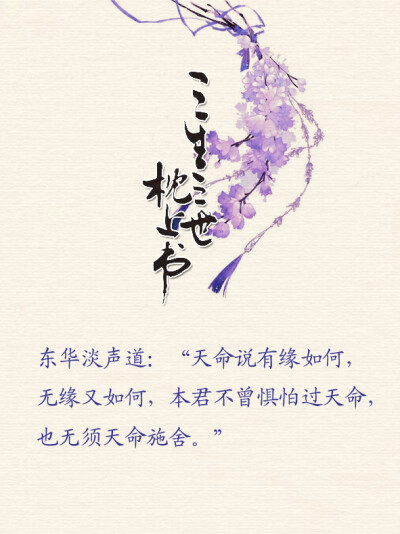 三生三世
枕上书
东华淡声道：“天命说有缘如何，
无缘又如何，本君不曾惧怕过天命，
也无须天命施舍。”